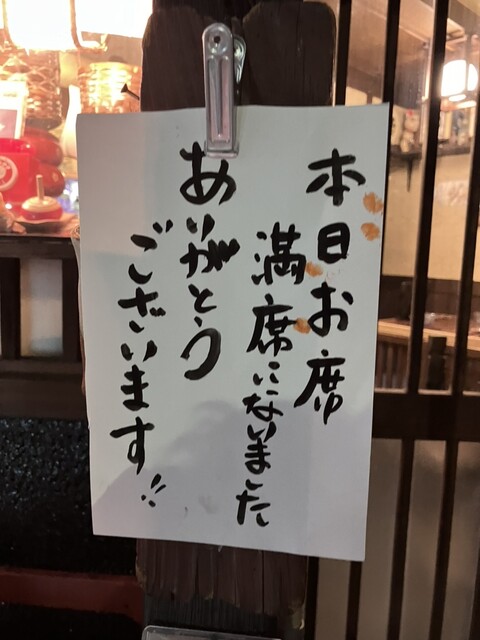 本日お席
満席になりました
ありがとう
ございます!!